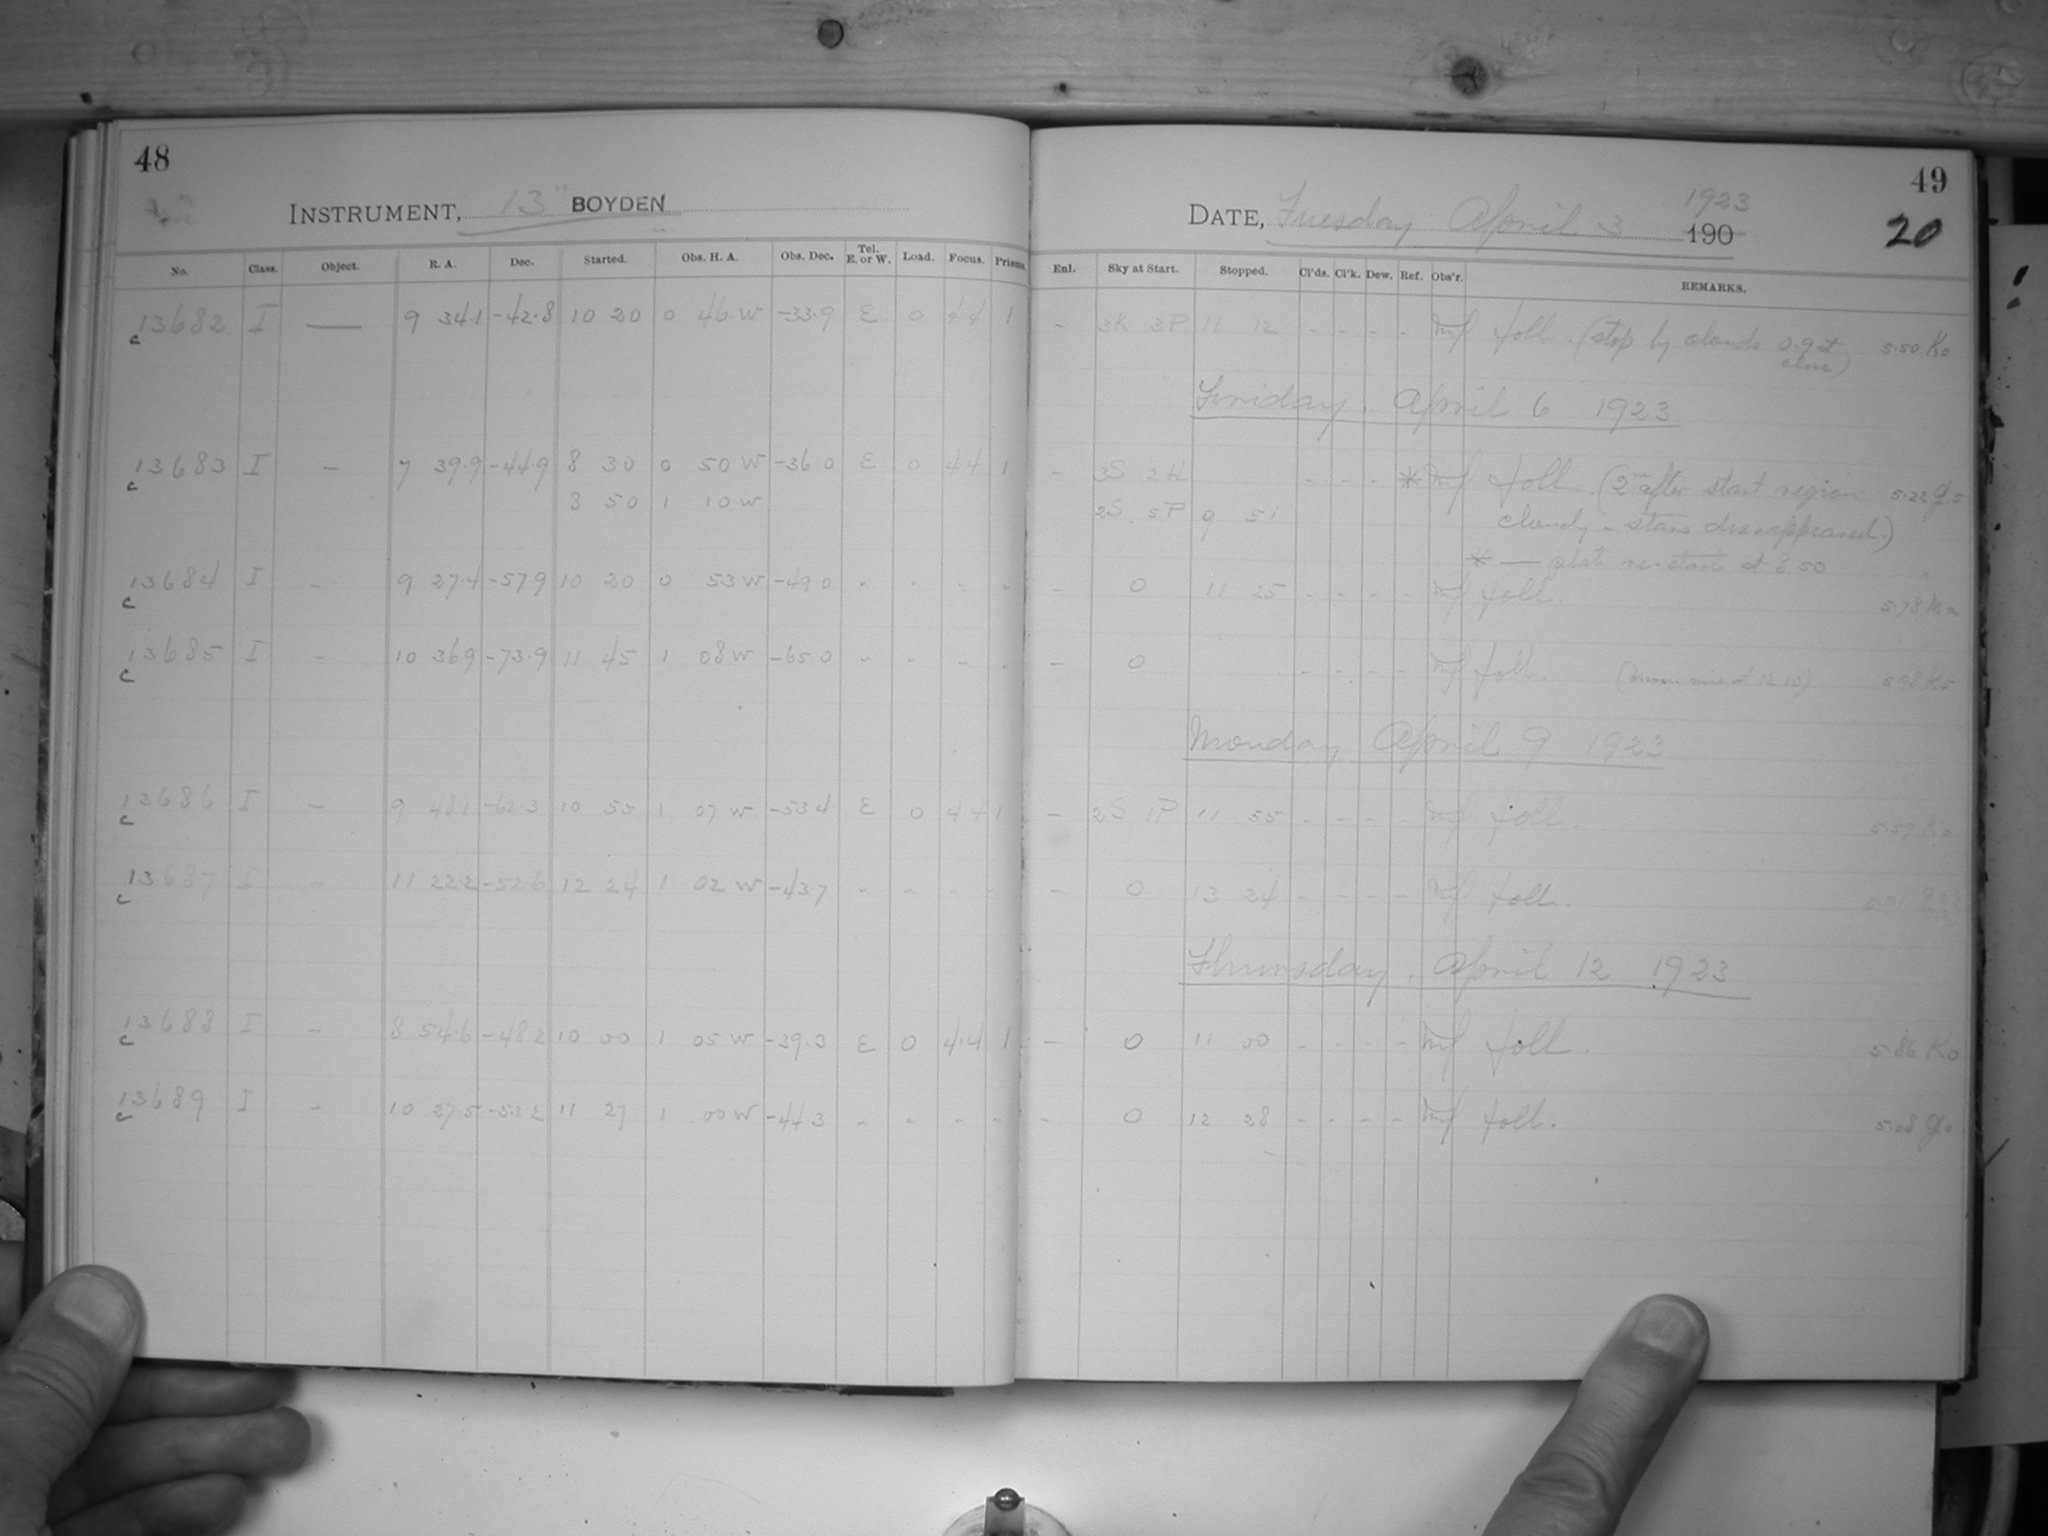 48
INSTRUMENT, 13" BOYDEN
No. Class. Object. R. A. Dec. Started. Obs. H. A. Obs. Dec. Tel. E. or W. Load. Focus. Prisms.
49
DATE, Tuesday April 3 1923 190
20
Enl. Sky at Start. Stopped. Cl'ds. Cl'k. Dew. Ref. Obs'r. REMARKS.
c 13682 I — 9 34.1 -42.8 10 20 0 46 W -33.9 E 0 44 1 - 3K 3P 11 12 - - - - foll. (stop by clouds 5.50 K0
Friday. April 6 1923
c 13683 I - 7 39.9 -44.9 8 30 0 50 W -36 0 E 0 44 1 - 3S 2H - - - * foll. (2m after start region 5.22
8 50 1 10 W 2S. 5P 9 51 cloudy - stars dissappeared.)
* — plate re-starts at 8 50
c 13684 I - 9 27.4 -57.9 10 20 0 53 W -49 0 - - - - - 0 11 25 - - - - foll. 5.78
c 13685 I - 10 36.9 -73.9 11 45 1 08 W -65 0 - - - - - 0 - - - - foll. 5.98 K5
Monday April 9 1923
c 13686 I - 9 48.1 -62 3 10 55 1 07 W -53 4 E 0 44 1 - 2S 1P 11 55 - - - - foll. 5.59 K0
c 13687 I - 11 22.2 -52 6 12 24 1 02 W -43.7 - - - - - 0 13 24 - - - - foll.
Thursday. April 12 1923
c 13688 I - 8 54.6 -48 2 10 00 1 05 W -39.3 E 0 4.4 1 - 0 11 00 - - - - foll. 5.86 K0
c 13689 I - 10 27.5 -53 2 11 27 1 00 W -44.3 - - - - - 0 12 28 - - - - foll. 5.08